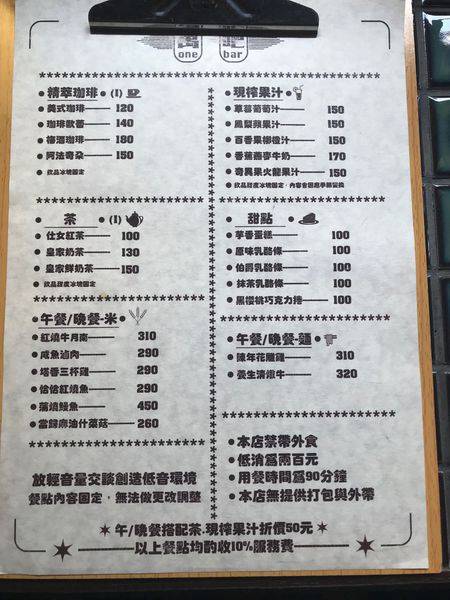 one bar
精萃咖啡 (I)
美式咖啡 120
咖啡歐蕾 140
梅酒咖啡 180
阿法奇朶 150
飲品甜度冰塊固定
茶 (I)
仕女紅茶 100
皇家奶茶 130
皇家鮮奶茶 150
飲品甜度冰塊固定
午餐/晚餐-米
紅燒牛月南 310
咸魚滷肉 290
塔香三杯雞 290
佶佶紅燒魚 290
蒲燒鰻魚 450
當歸麻油什菜菇 260
放輕音量交談創造低音環境
餐點內容固定，無法做更改調整
現榨果汁
草莓葡萄汁 150
鳳梨蘋果汁 150
百香果柳橙汁 150
香蕉燕麥牛奶 170
奇異果火龍果汁 150
飲品甜度冰塊固定，內容會因應季節替換
甜點
芋香蛋糕 100
原味乳酪條 100
伯爵乳酪條 100
抹茶乳酪條 100
黑櫻桃巧克力捲 100
午餐/晚餐-麵
陳年花雕雞 310
養生清燉牛 320
本店禁帶外食
低消為兩百元
用餐時間為90分鐘
本店無提供打包與外帶
午/晚餐搭配茶.現榨果汁折價50元
以上餐點均酌收10%服務費